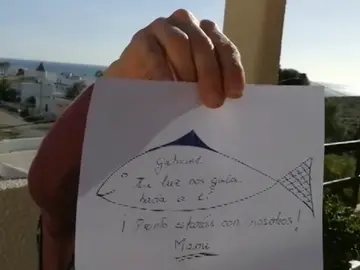 Gabriel
Tu luz nos guía
hacia a ti
¡Pronto estarás con nosotros!
Manu